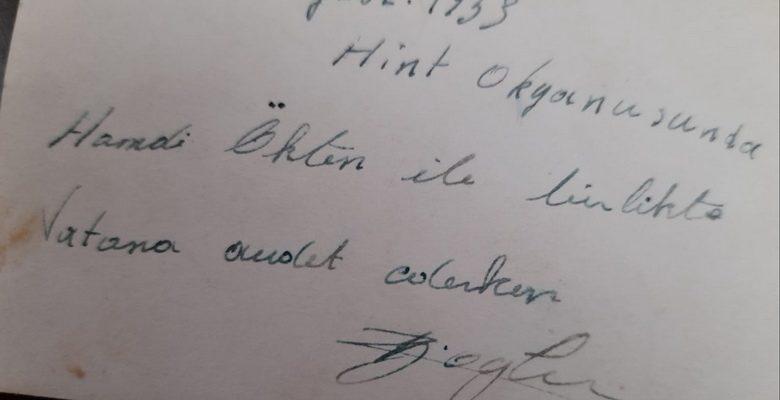 1953
Hint Okyanusunda
Hamdi Ökten ile birlikte
Vatana avdet ederken